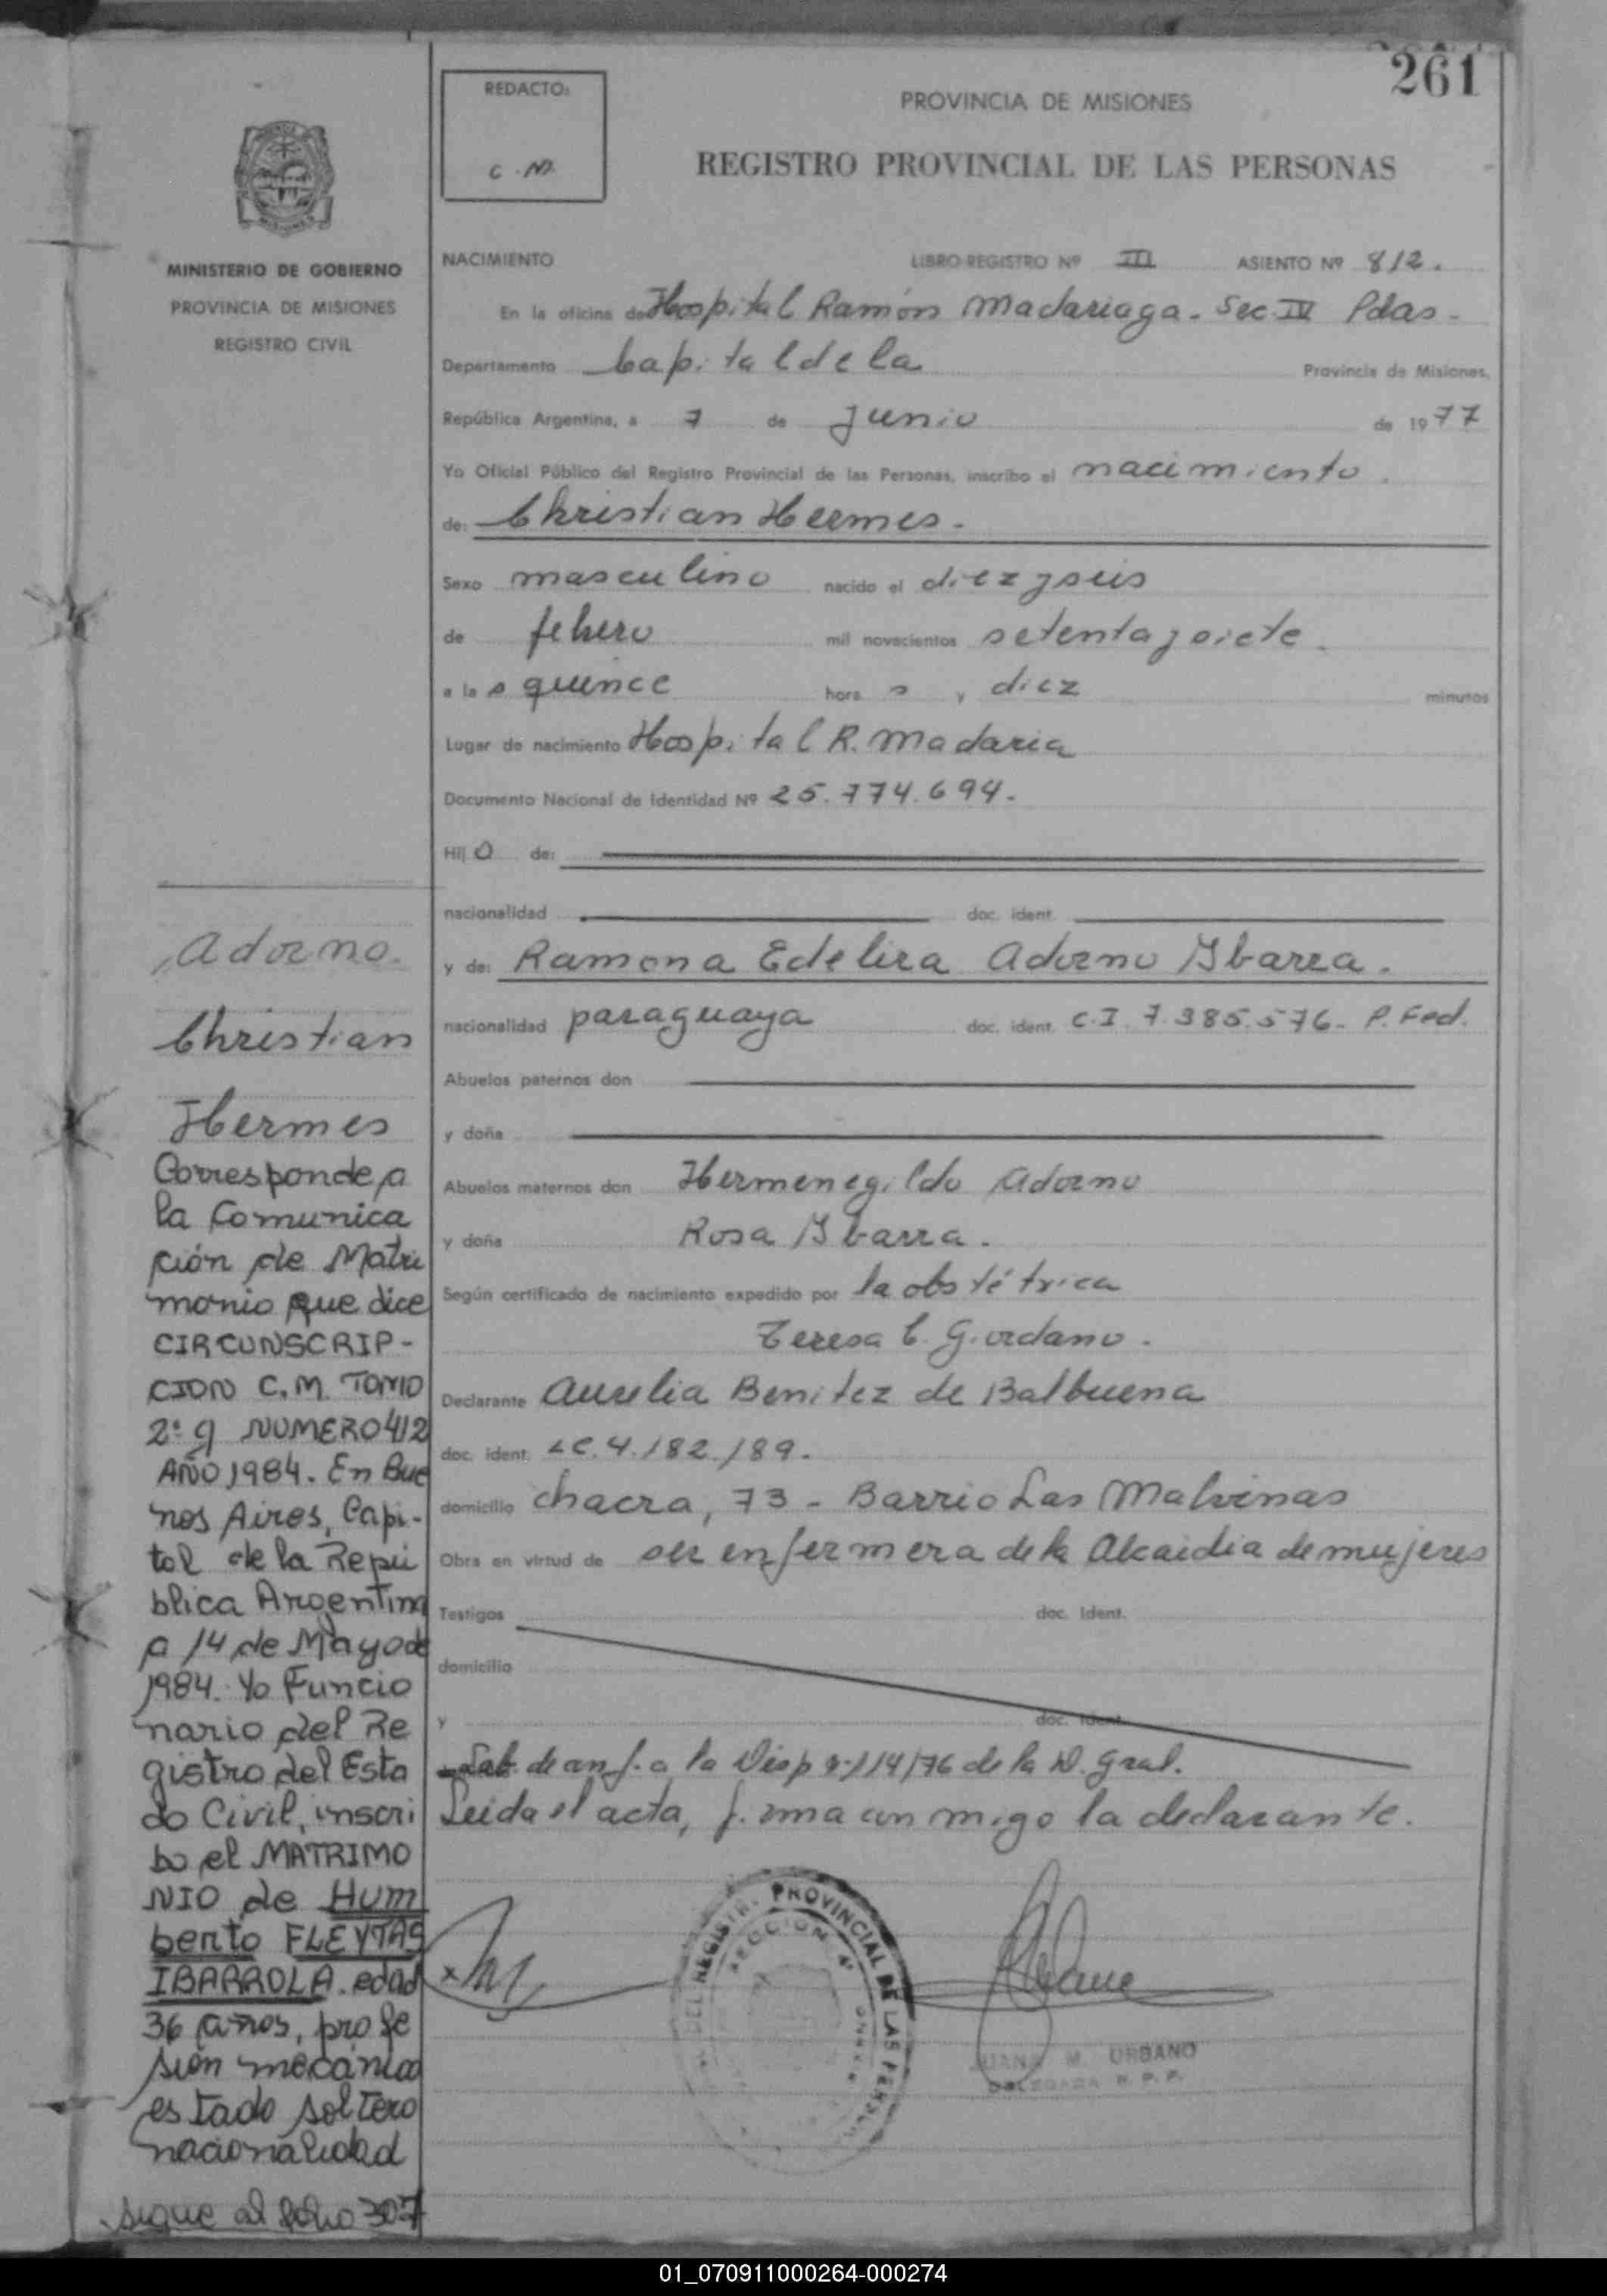 261
REDACTO:
C. M.
PROVINCIA DE MISIONES
REGISTRO PROVINCIAL DE LAS PERSONAS
MINISTERIO DE GOBIERNO
PROVINCIA DE MISIONES
REGISTRO CIVIL
NACIMIENTO LIBRO REGISTRO Nº III ASIENTO Nº 812.
En la oficina de Hospital Ramón Madariaga. Sec. IV Pdas.
Departamento Capital de la Provincia de Misiones,
República Argentina, a 7 de Junio de 1977
Yo Oficial Público del Registro Provincial de las Personas, inscribo el nacimiento.
de: Christian Hermes.
Sexo masculino nacido el diez y seis
de febrero mil novecientos setenta y siete.
a las quince horas y diez minutos
Lugar de nacimiento Hospital R. Madaria
Documento Nacional de Identidad Nº 25.774.694.
Hijo de:
nacionalidad doc. ident.
y de: Ramona Edelira Adorno Ybarra.
nacionalidad paraguaya doc. ident. C.I. 7.385.576. P. Fed.
Abuelos paternos don
y doña
Abuelos maternos don Hermenegildo Adorno
y doña Rosa Ybarra.
Según certificado de nacimiento expedido por la obstétrica
Teresa C. Giordano.
Declarante Aurelia Benitez de Balbuena
doc. ident. LC. 4.182.189.
domicilio chacra, 73 - Barrio Las Malvinas
Obra en virtud de ser enfermera de la Alcaidia de mujeres
Testigos doc. ident.
domicilio
y doc. ident.
de conf. a la Disp 114/76 de la D. Gral.
Leida el acta, firma conmigo la declarante.
REGISTR. PROVINCIAL DE LAS
SECCION 4ª
JUANA M. URBANO
DELEGADA R. P. P.
Adorno.
Christian
Hermes
Corresponde a
la Comunica
ción de Matri
monio que dice
CIRCUNSCRIP-
CION C.M. TOMO
2º g NUMERO 412
AÑO 1984. En Bue
nos Aires, Capi-
tal de la Repú
blica Argentina
a 14 de Mayo de
1984. Yo Funcio
nario del Re
gistro del Esta
do Civil, inscri
bo el MATRIMO
NIO de HUM
berto FLEYTAS
IBARROLA. edad
36 años, profe
sión mecánico
estado soltero
nacionalidad
sigue al folio 307
01_070911000264-000274